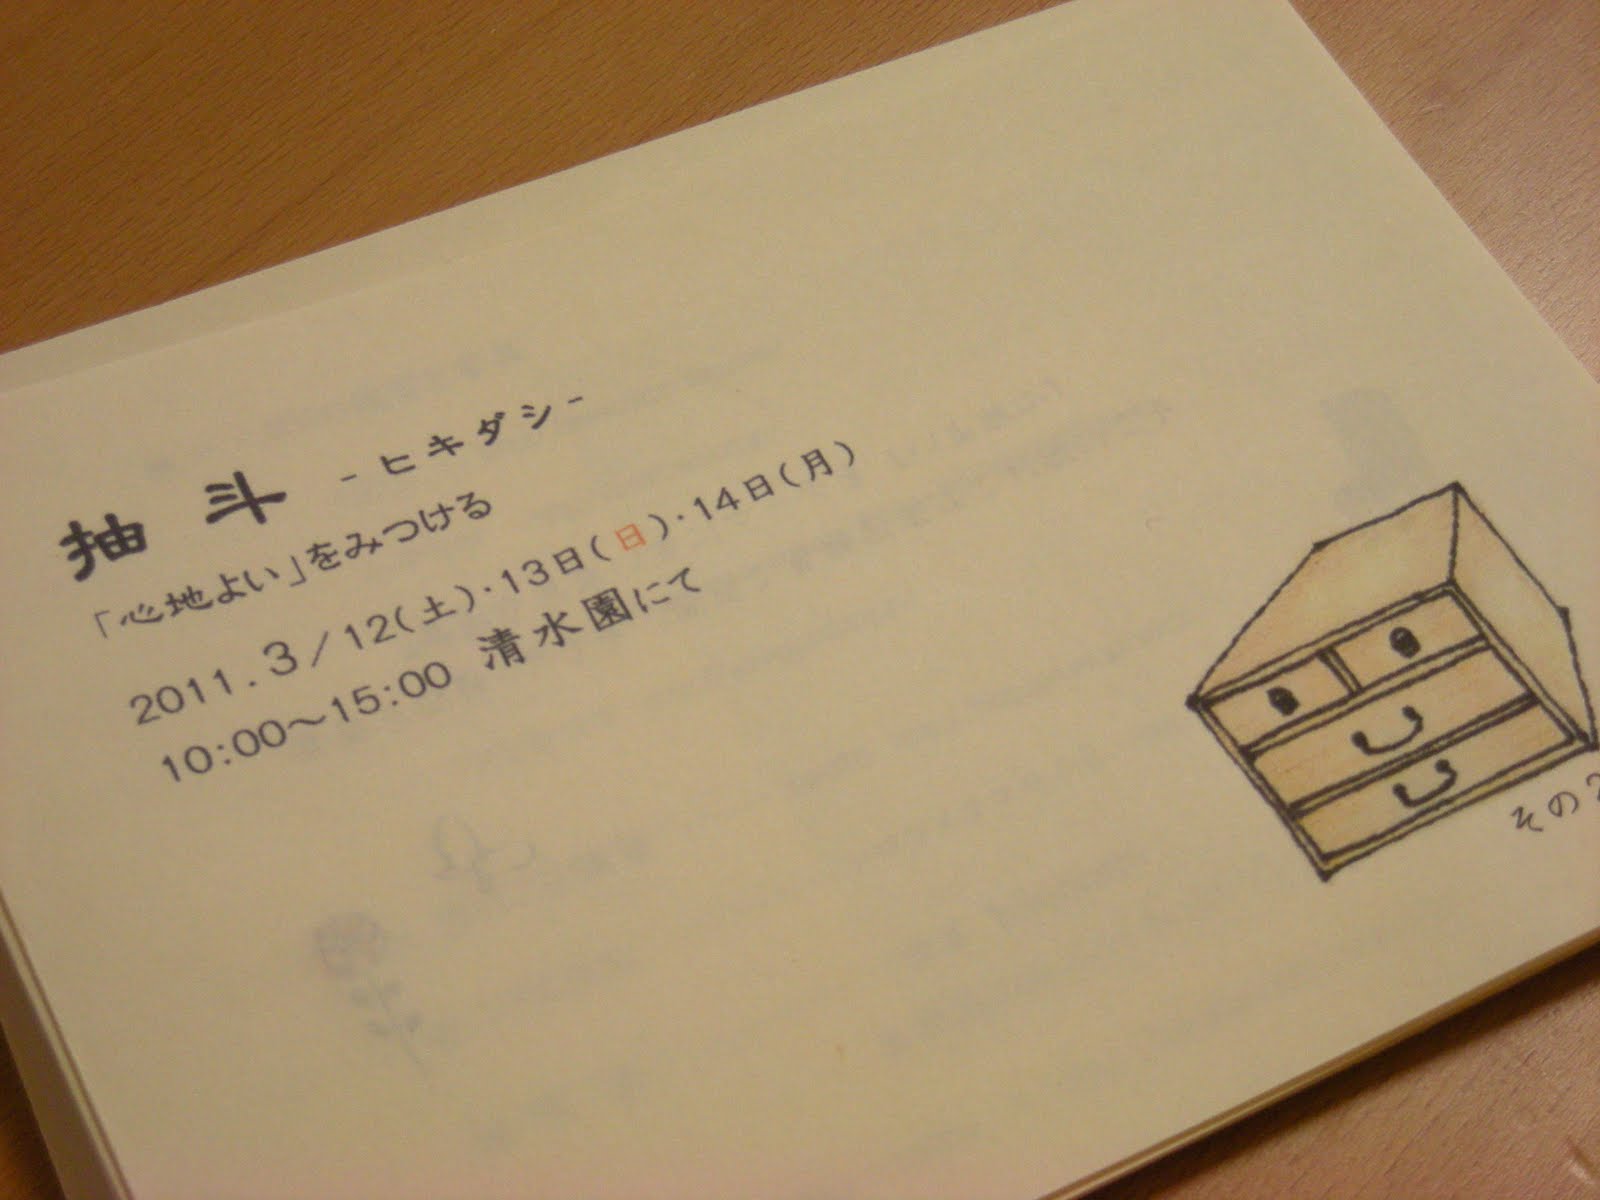 抽斗 -ヒキダシ-
「心地よい」をみつける
2011.3/12(土)・13日(日)・14日(月)
10:00～15:00 清水園にて
その2